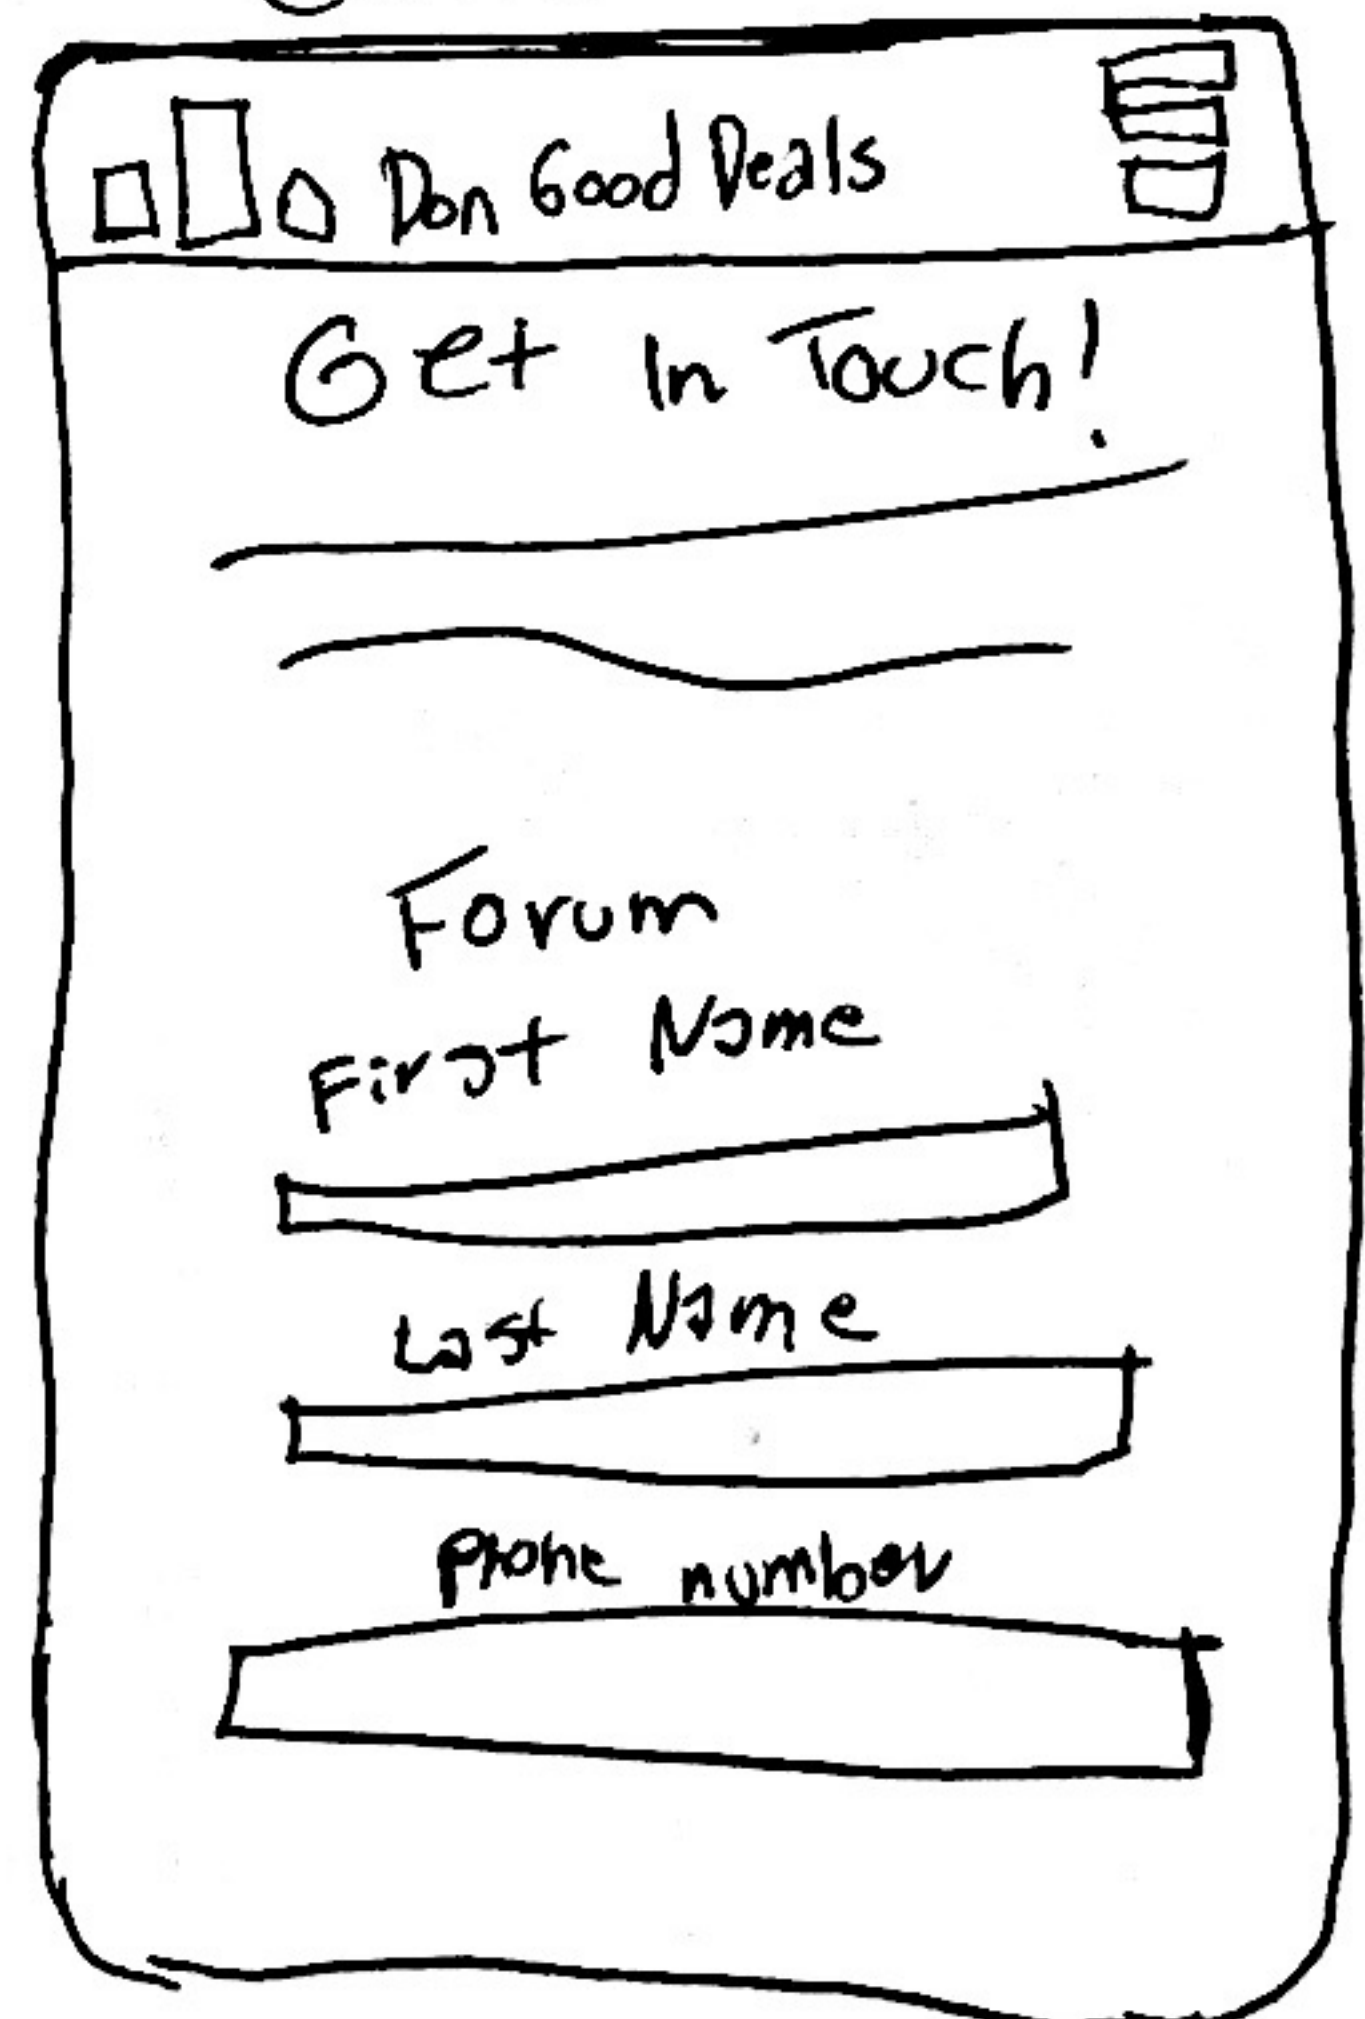 Don Good Deals
Get In Touch!
Forum
First Name
Last Name
Phone number